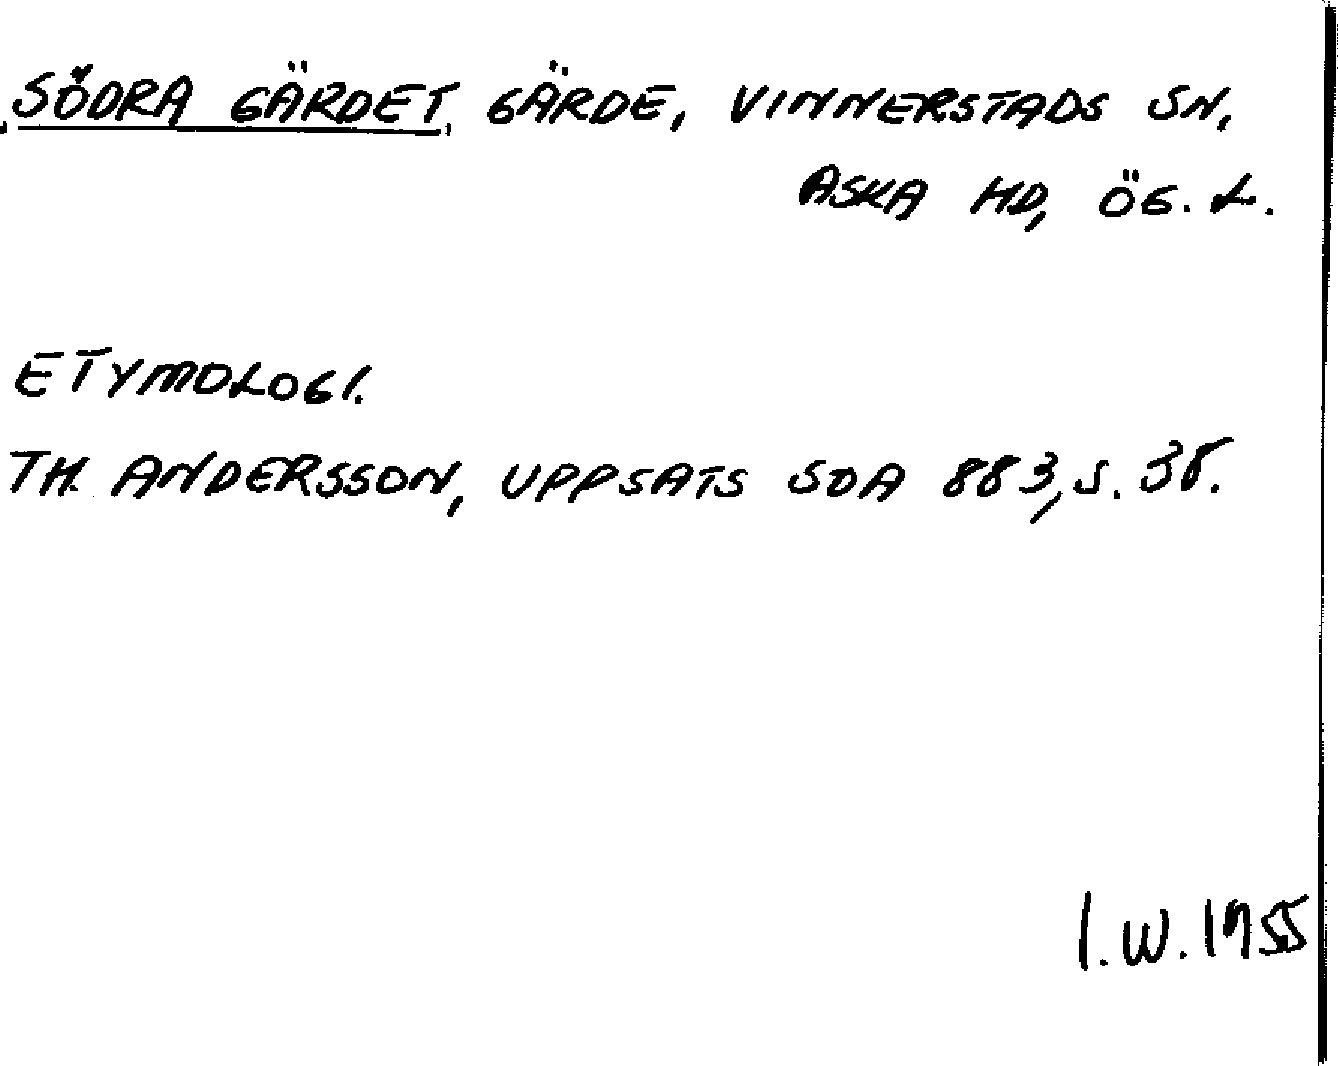 SÖDRA GÄRDET, GÄRDE, VINNERSTADS SN,
ASKA HD, ÖG. L.
ETYMOLOGI.
TH. ANDERSSON, UPPSATS SOA 883, S. 38.
I.W. 1955